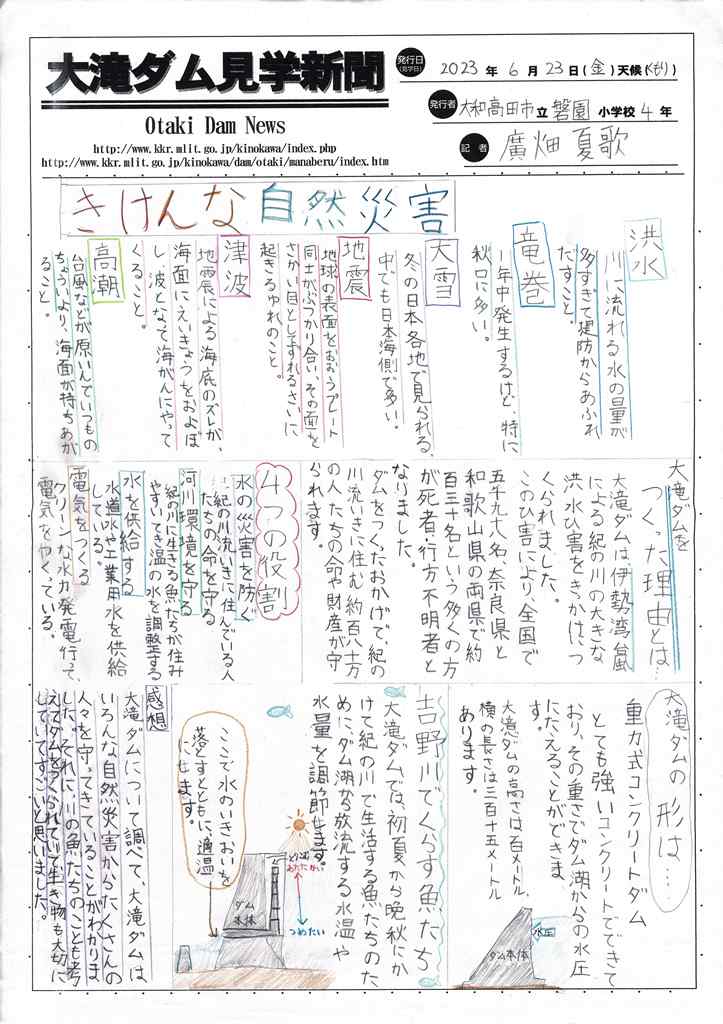 大滝ダム見学新聞
Otaki Dam News
http://www.kkr.mlit.go.jp/kinokawa/index.php
http://www.kkr.mlit.go.jp/kinokawa/dam/otaki/manaberu/index.htm
発行日(見学日) 2023年6月23日(金)天候(くもり)
発行者 大和高田市立磐園小学校4年
記者 廣畑 夏歌
きけんな自然災害
洪水
川に流れる水の量が
多すぎて堤防からあふれ
だすこと。
竜巻
1年中発生するけど、特に
秋口に多い。
大雪
冬の日本各地で見られる、
中でも日本海側で多い。
地震
地球の表面をおおうプレート
同士がぶつかり合い、その面を
さかい目としてずれるさいに
起きるゆれのこと。
津波
地震による海底のズレが、
海面にえいきょうをおよぼ
し、波となって海がんにやって
くること。
高潮
台風などが原いんでいつもの
ちょういより、海面が持ちあが
ること。
大滝ダムを
つくった理由とは…
大滝ダムは伊勢湾台風
による紀の川の大きな
洪水ひ害をきっかけにつ
くられました。
このひ害により全国で
五千九十八名、奈良県と
和歌山県の両県で約
百三十名という多くの方
が死者・行方不明者と
なりました。
ダムをつくったおかげで、紀の
川流いきに住む約百八十万
の人たちの命や財産が守
られます。
4つの役割
水の災害を防ぐ
…紀の川流いきに住んでいる人
たちの命を守る
河川環境を守る
紀の川に生きる魚たちが住み
やすいてき温の水を調整する
水を供給する
水道水や工業用水を供給
している。
電気をつくる
クリーンな水力発電行って、
電気をつくっている。
大滝ダムの形は…
重力式コンクリートダム
とても強いコンクリートでできて
おり、その重さでダム湖からの水圧
にたえることができま
す。
大滝ダムの高さは百メートル
横の長さは三百十五メートル
あります。
水圧
ダム本体
吉野川でくらす魚たち
大滝ダムでは、初夏から晩秋にか
けて紀の川で生活する魚たちのた
めに、ダム湖から放流する水温や
水量を調節します。
あたたかい
つめたい
ダム本体
ここで水のいきおいを
落とすとともに、適温
にします。
感想
大滝ダムについて調べて、大滝ダムは
いろんな自然災害からたくさんの
人々を守ってきていることがわかりま
した。それに、川の魚たちのことも考
えてダムをつくられていて生き物も大切に
していてすごいと思いました。